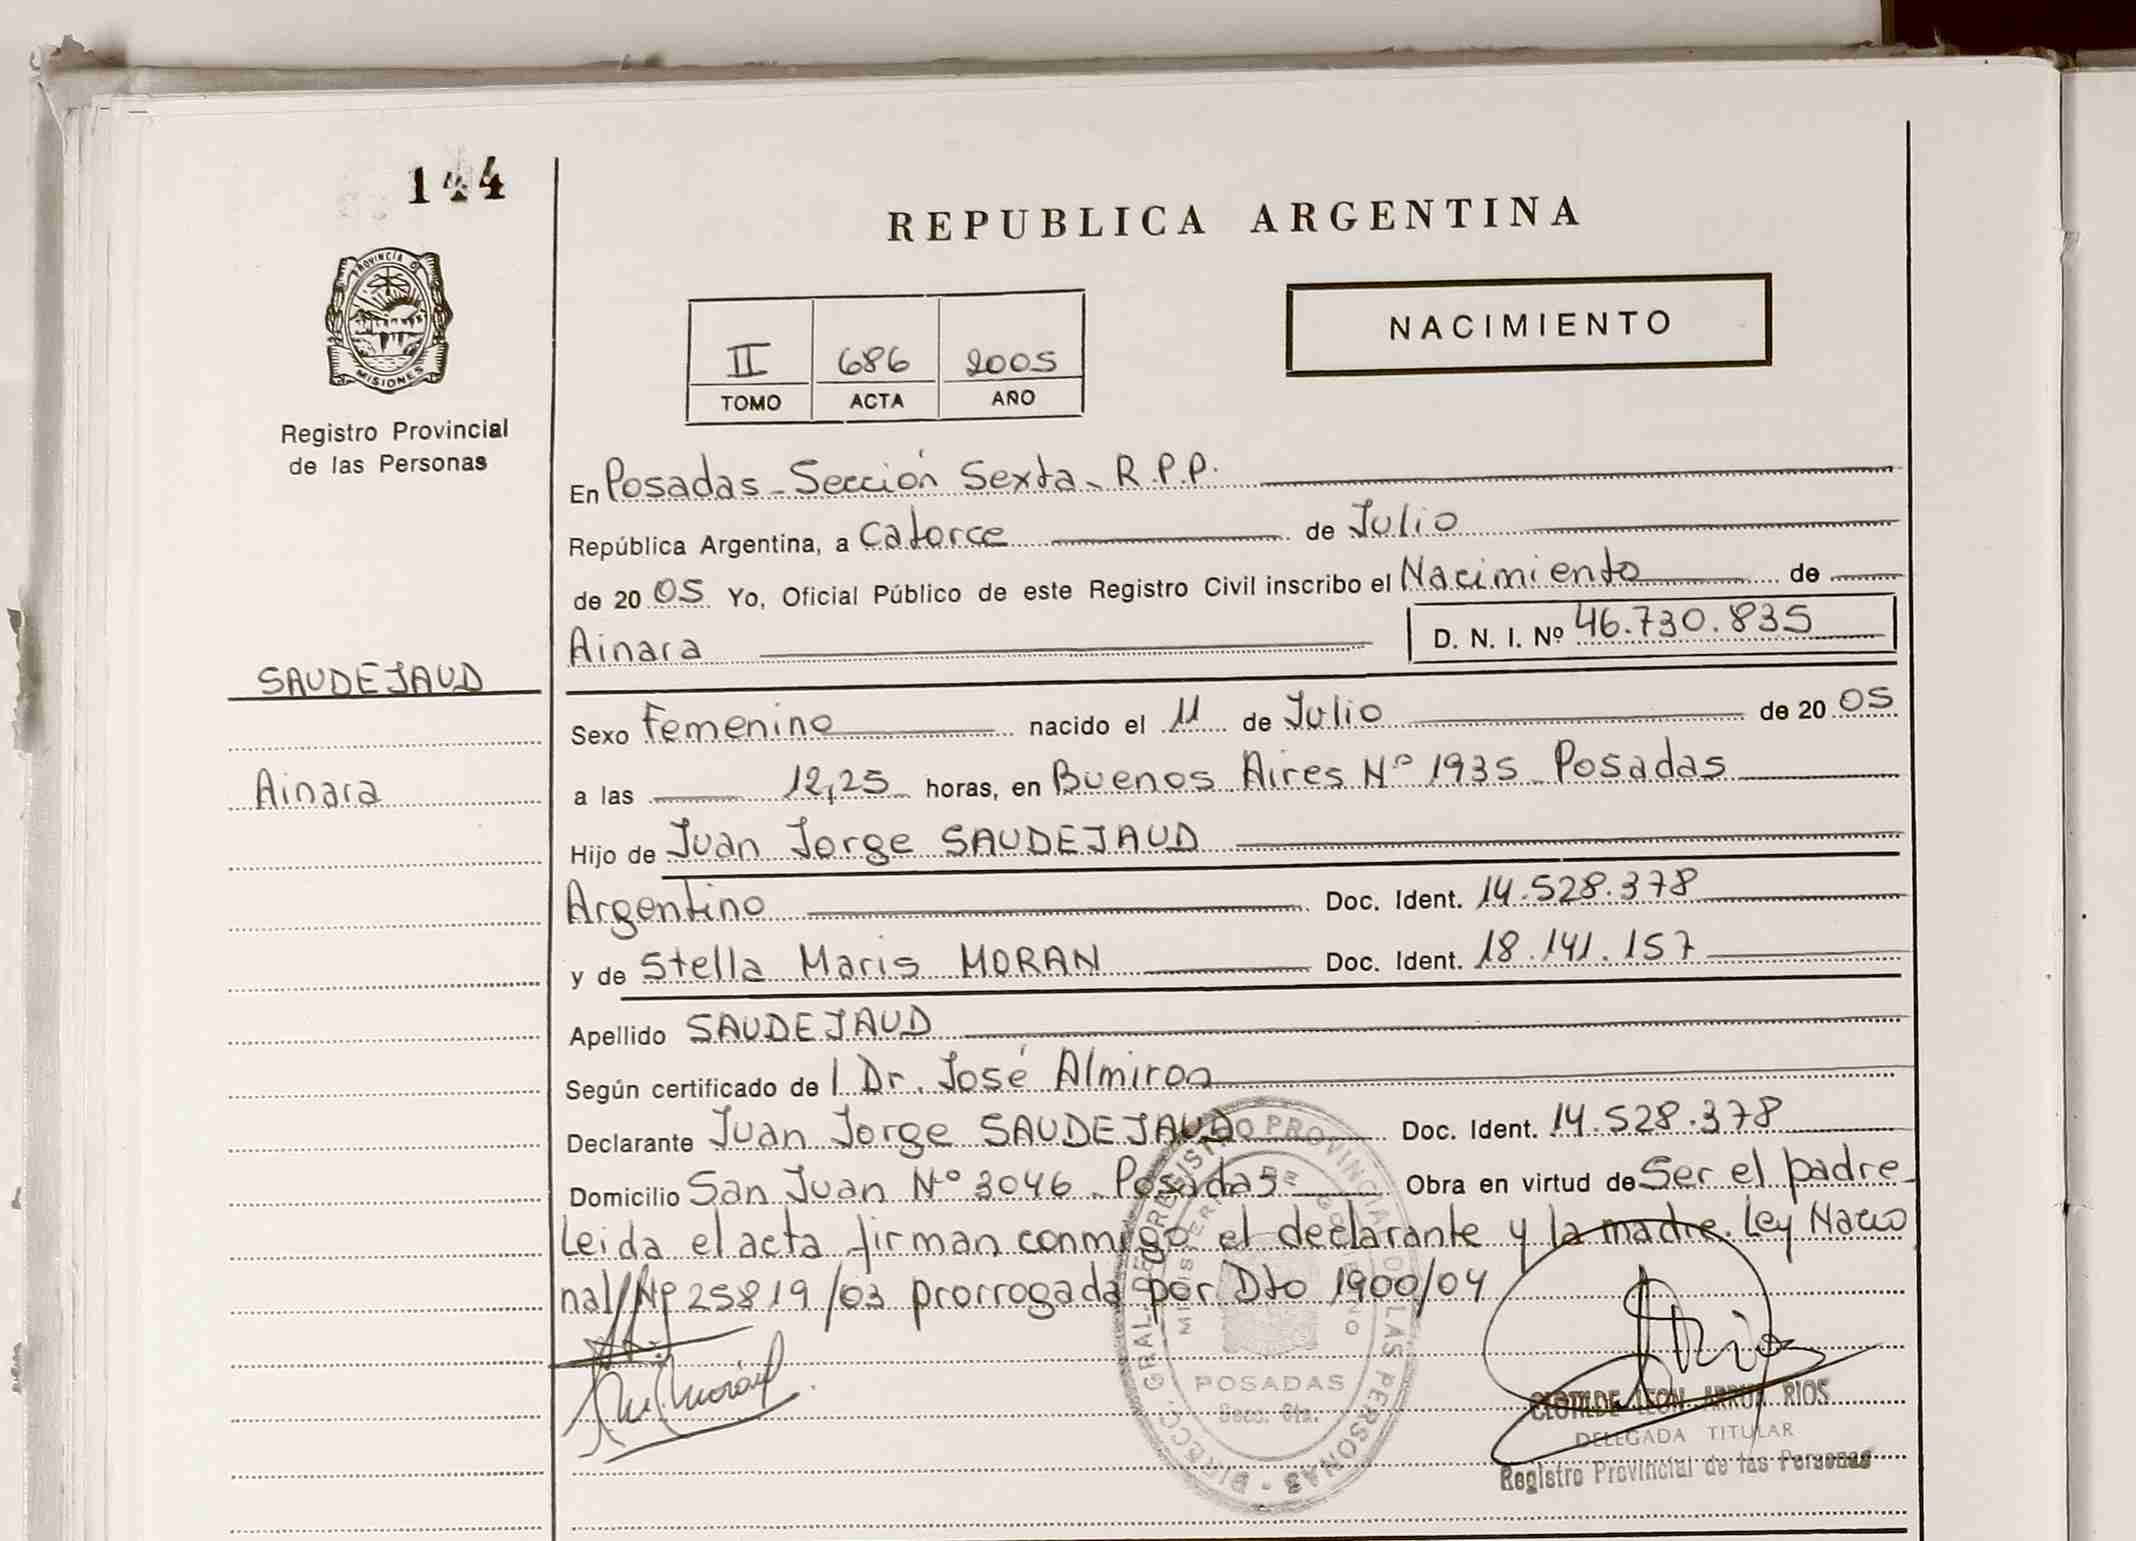 144
REPUBLICA ARGENTINA
PROVINCIA DE
MISIONES
NACIMIENTO
II 686 2005
TOMO ACTA AÑO
Registro Provincial
de las Personas
En Posadas - Sección Sexta - R.P.P.
República Argentina, a Catorce de Julio
de 2005 Yo, Oficial Público de este Registro Civil inscribo el Nacimiento de
Ainara D. N. I. Nº 46.730.835
SAUDEJAUD
Sexo Femenino nacido el 11 de Julio de 2005
Ainara
a las 12,25 horas, en Buenos Aires Nº 1935 - Posadas
Hijo de Juan Jorge SAUDEJAUD
Argentino Doc. Ident. 14.528.378
y de Stella Maris MORAN Doc. Ident. 18.141.157
Apellido SAUDEJAUD
Según certificado de l Dr. José Almiron
Declarante Juan Jorge SAUDEJAUD Doc. Ident. 14.528.378
Domicilio San Juan Nº 3046 - Posadas Obra en virtud de Ser el padre
Leida el acta firman conmigo el declarante y la madre. Ley Nacio
nal Nº 25819/03 prorrogada por Dto 1900/04
DIRECC. GRAL. DEL REGISTRO PROVINCIAL DE LAS PERSONAS
MINISTERIO DE GOBIERNO
POSADAS
Secc. 6ta.
CLOTILDE LEON RIOS
DELEGADA TITULAR
Registro Provincial de las Personas